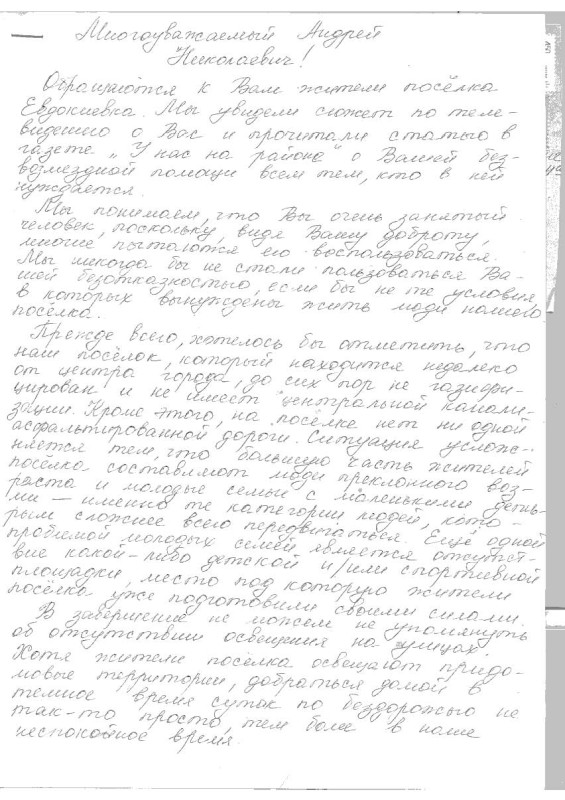 Многоуважаемый Андрей
Николаевич!
Обращаются к Вам жители посёлка
Евдокиевка. Мы увидели сюжет по теле-
видению о Вас и прочитали статью в
газете „У нас на районе" о Вашей без-
возмездной помощи всем тем, кто в ней
нуждается.
Мы понимаем, что Вы очень занятый
человек, поскольку, видя Вашу доброту,
многие пытаются ею воспользоваться.
Мы никогда бы не стали пользоваться Ва-
шей безотказностью, если бы не те условия,
в которых вынуждены жить люди нашего
посёлка.
Прежде всего, хотелось бы отметить, что
наш посёлок, который находится недалеко
от центра города, до сих пор не газифи-
цирован и не имеет центральной канали-
зации. Кроме этого, на посёлке нет ни одной
асфальтированной дороги. Ситуация услож-
няется тем, что большую часть жителей
посёлка составляют люди преклонного воз-
раста и молодые семьи с маленькими деть-
ми — именно те категории людей, кото-
рым сложнее всего передвигаться. Ещё одной
проблемой молодых семей является отсутст-
вие какой-либо детской и/или спортивной
площадки, место под которую жители
посёлка уже подготовили своими силами.
В завершение не можем не упомянуть
об отсутствии освещения на улицах.
Хотя жители посёлка освещают придо-
мовые территории, добраться домой в
темное время суток по бездорожью не
так-то просто, тем более в наше
неспокойное время.